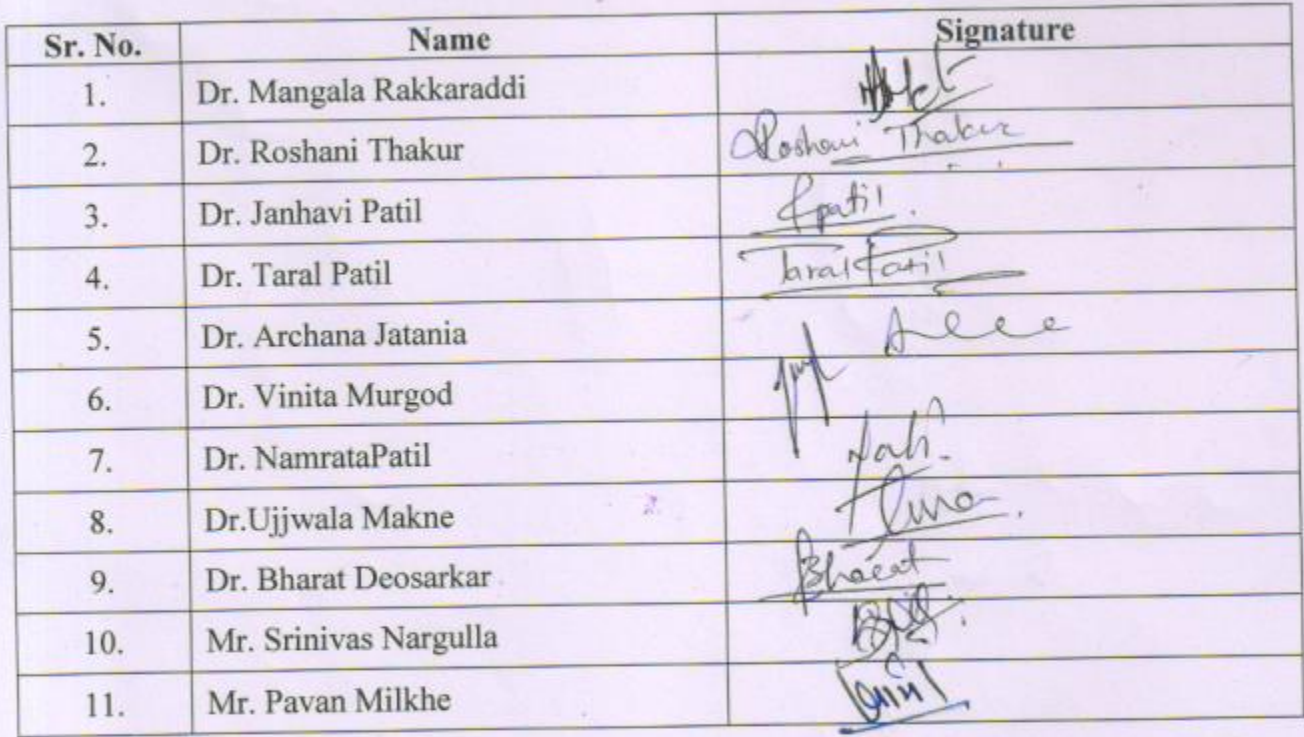 Sr. No. Name Signature
1. Dr. Mangala Rakkaraddi
2. Dr. Roshani Thakur Roshani Thakur
3. Dr. Janhavi Patil Jpatil.
4. Dr. Taral Patil Taral Patil
5. Dr. Archana Jatania
6. Dr. Vinita Murgod
7. Dr. NamrataPatil
8. Dr.Ujjwala Makne
9. Dr. Bharat Deosarkar Bharat
10. Mr. Srinivas Nargulla
11. Mr. Pavan Milkhe